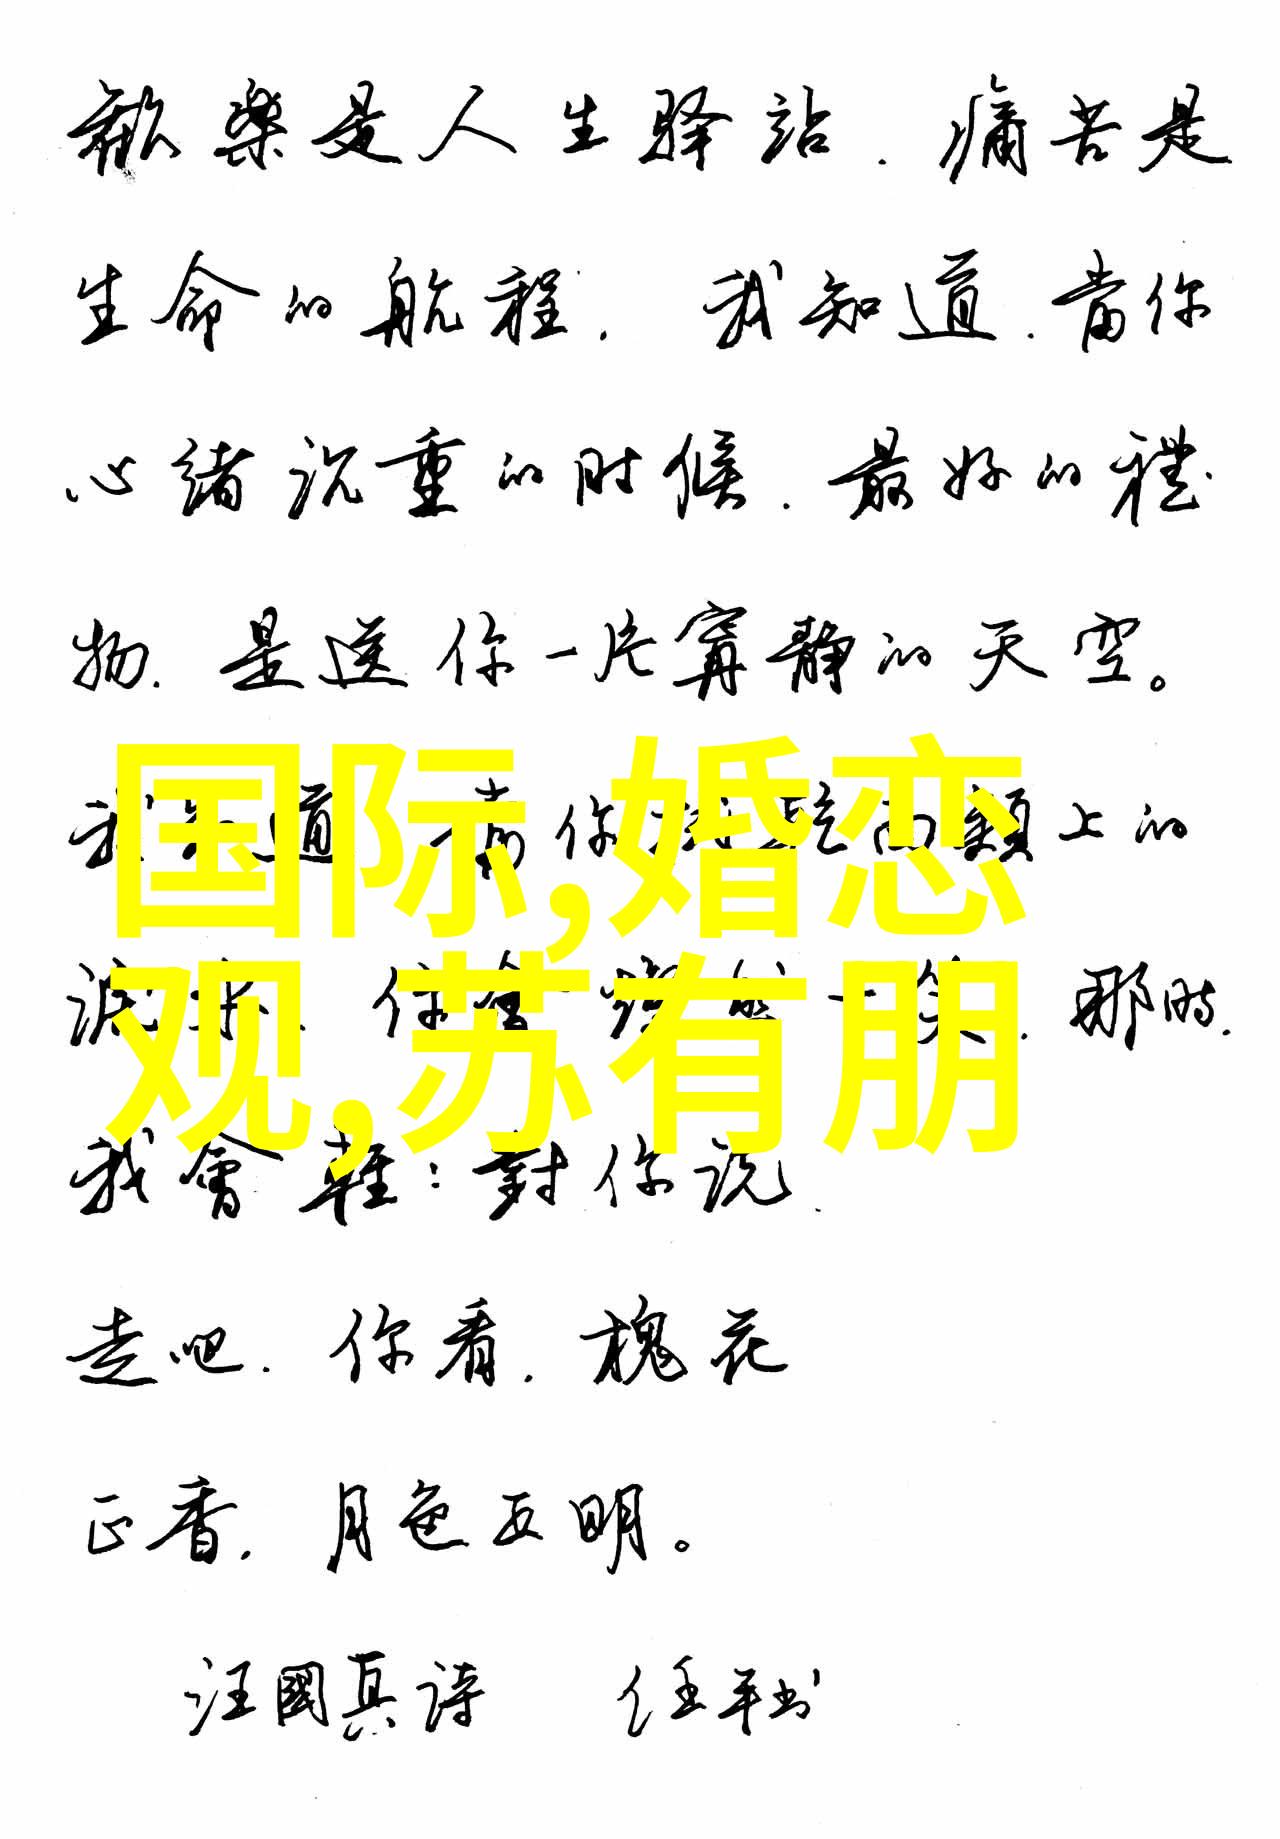 歡樂是人生驿站．痛苦是
生命的航程．我知道．當你
心緒沉重的时候．最好的禮
物．是送你一片寧靜的天空。
你 上的
国际,婚恋
你會 一笑．那時．
观,苏有朋
我會輕：對你说．
走吧．你看．槐花
正香．月色正明。
汪國真詩 任平书